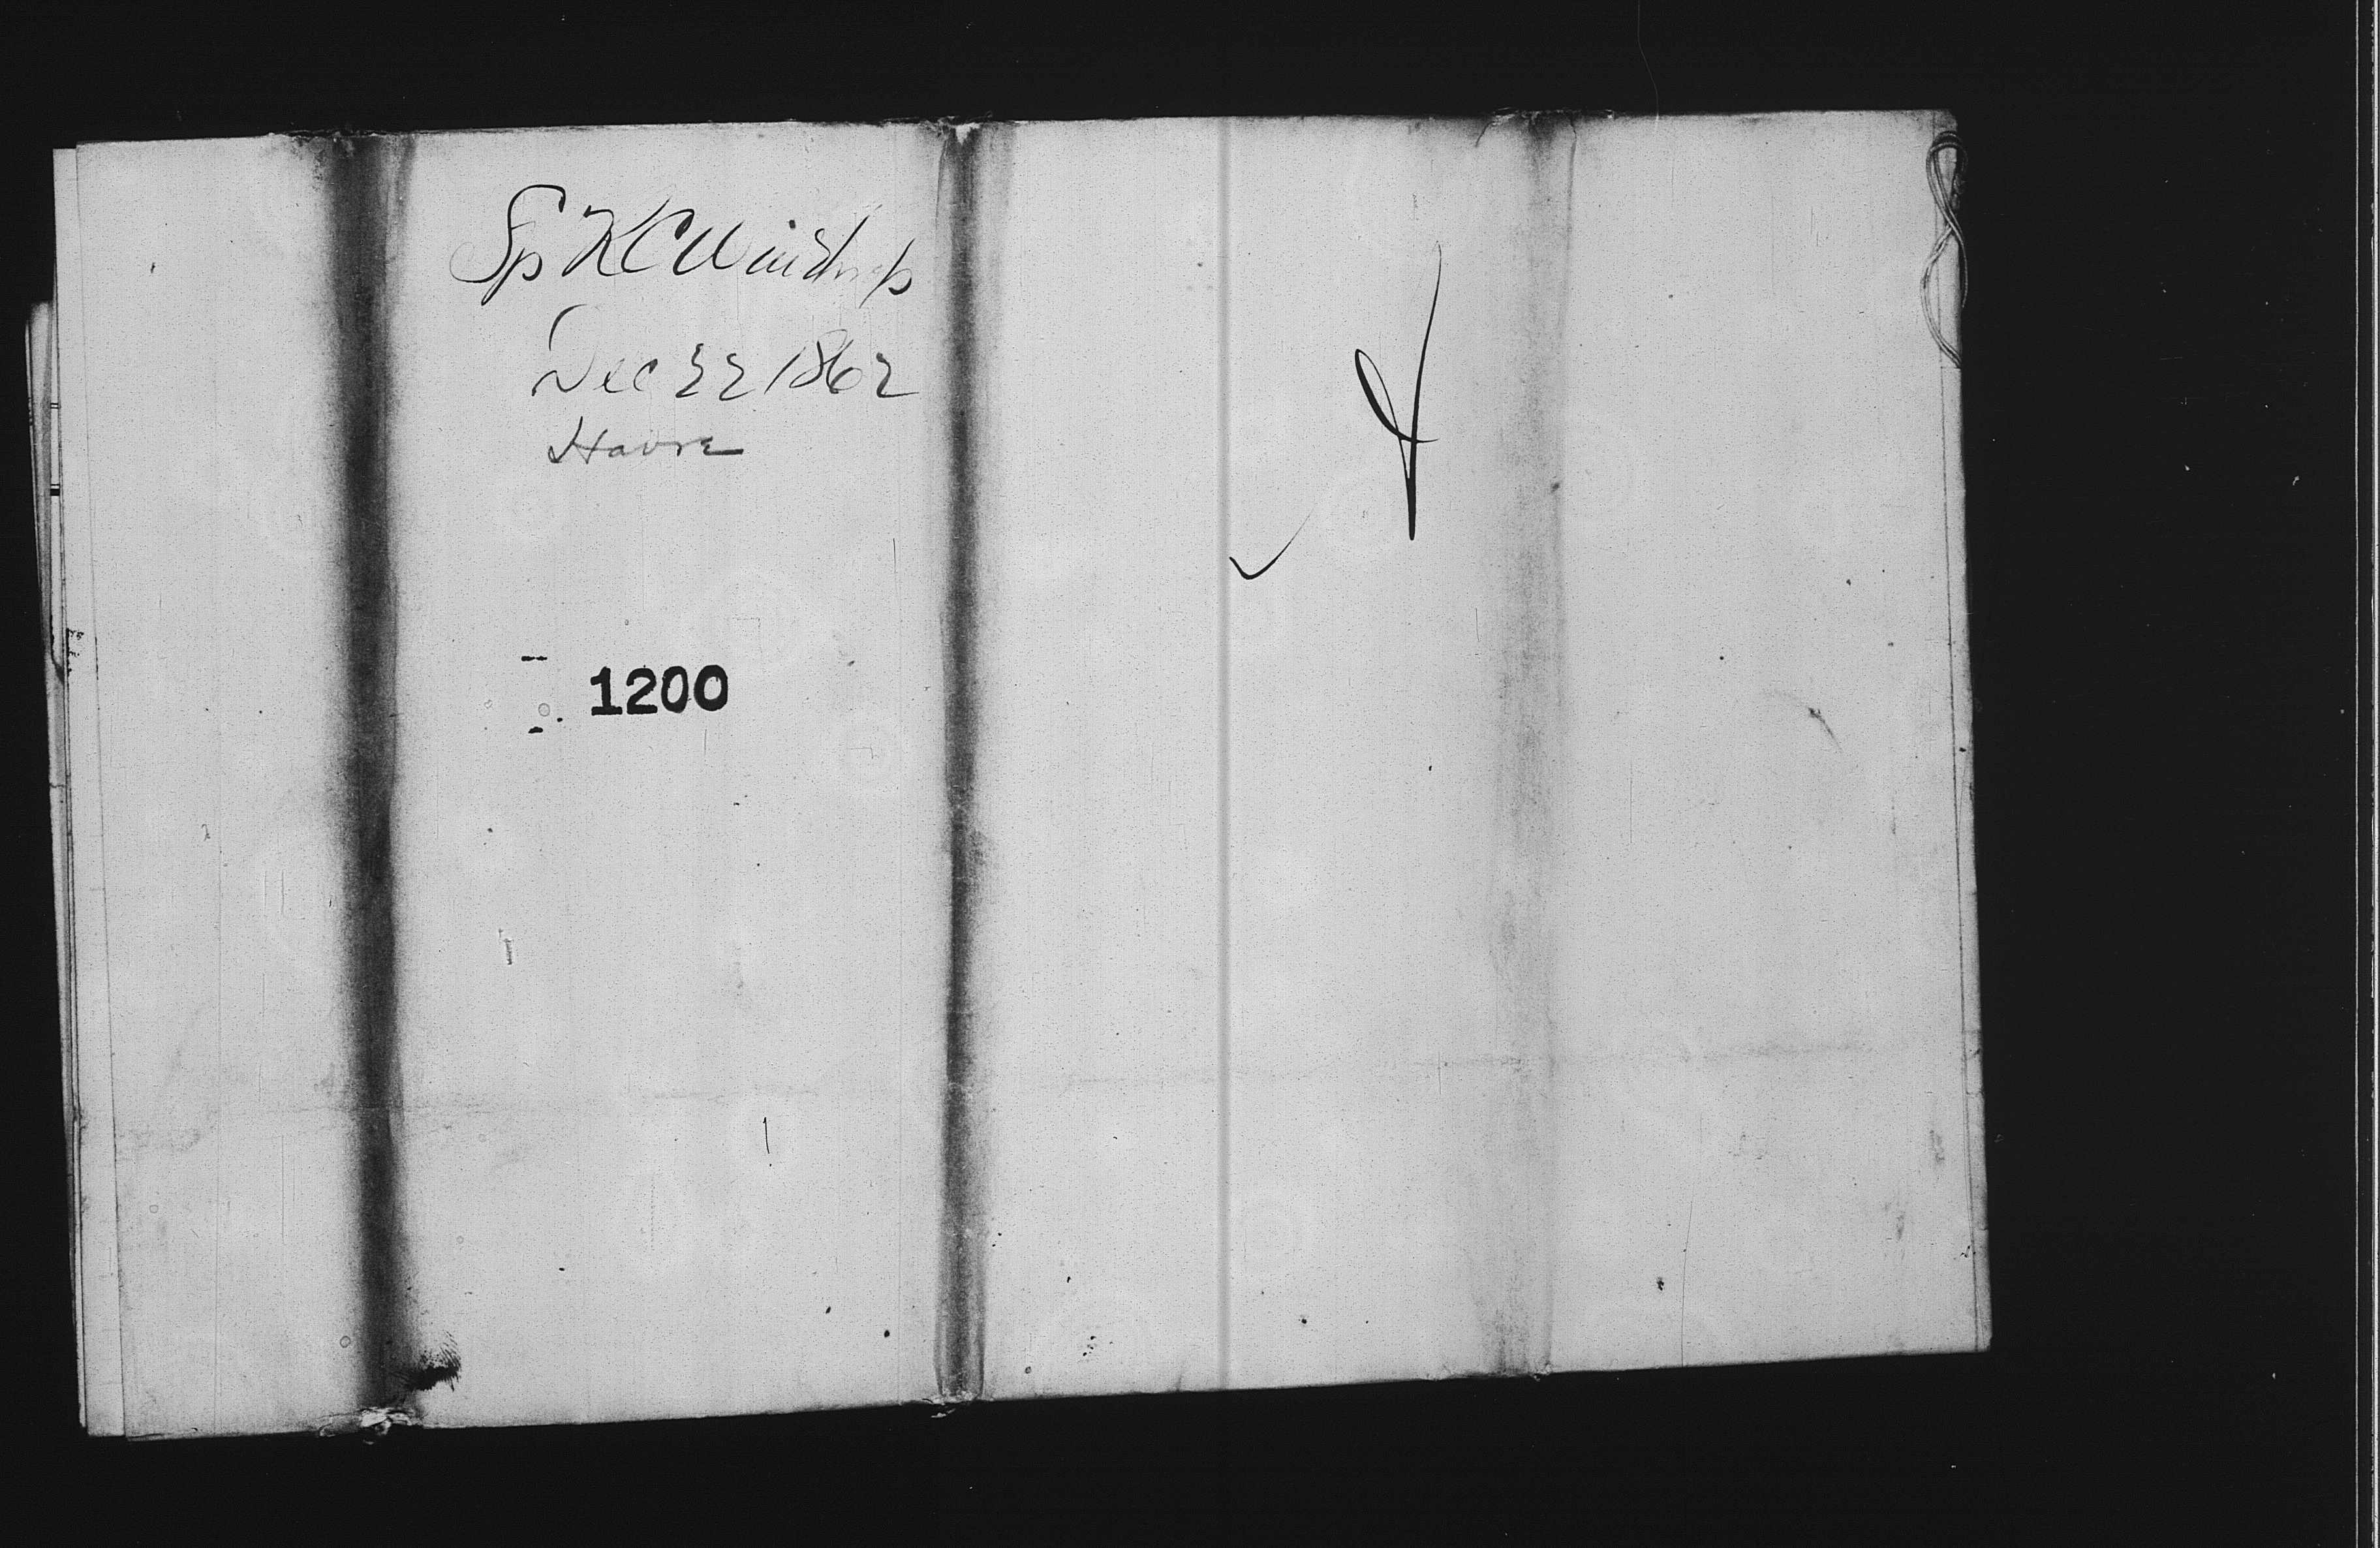 Sp R C Winthrop
Dec 22 1862
Havre
1200